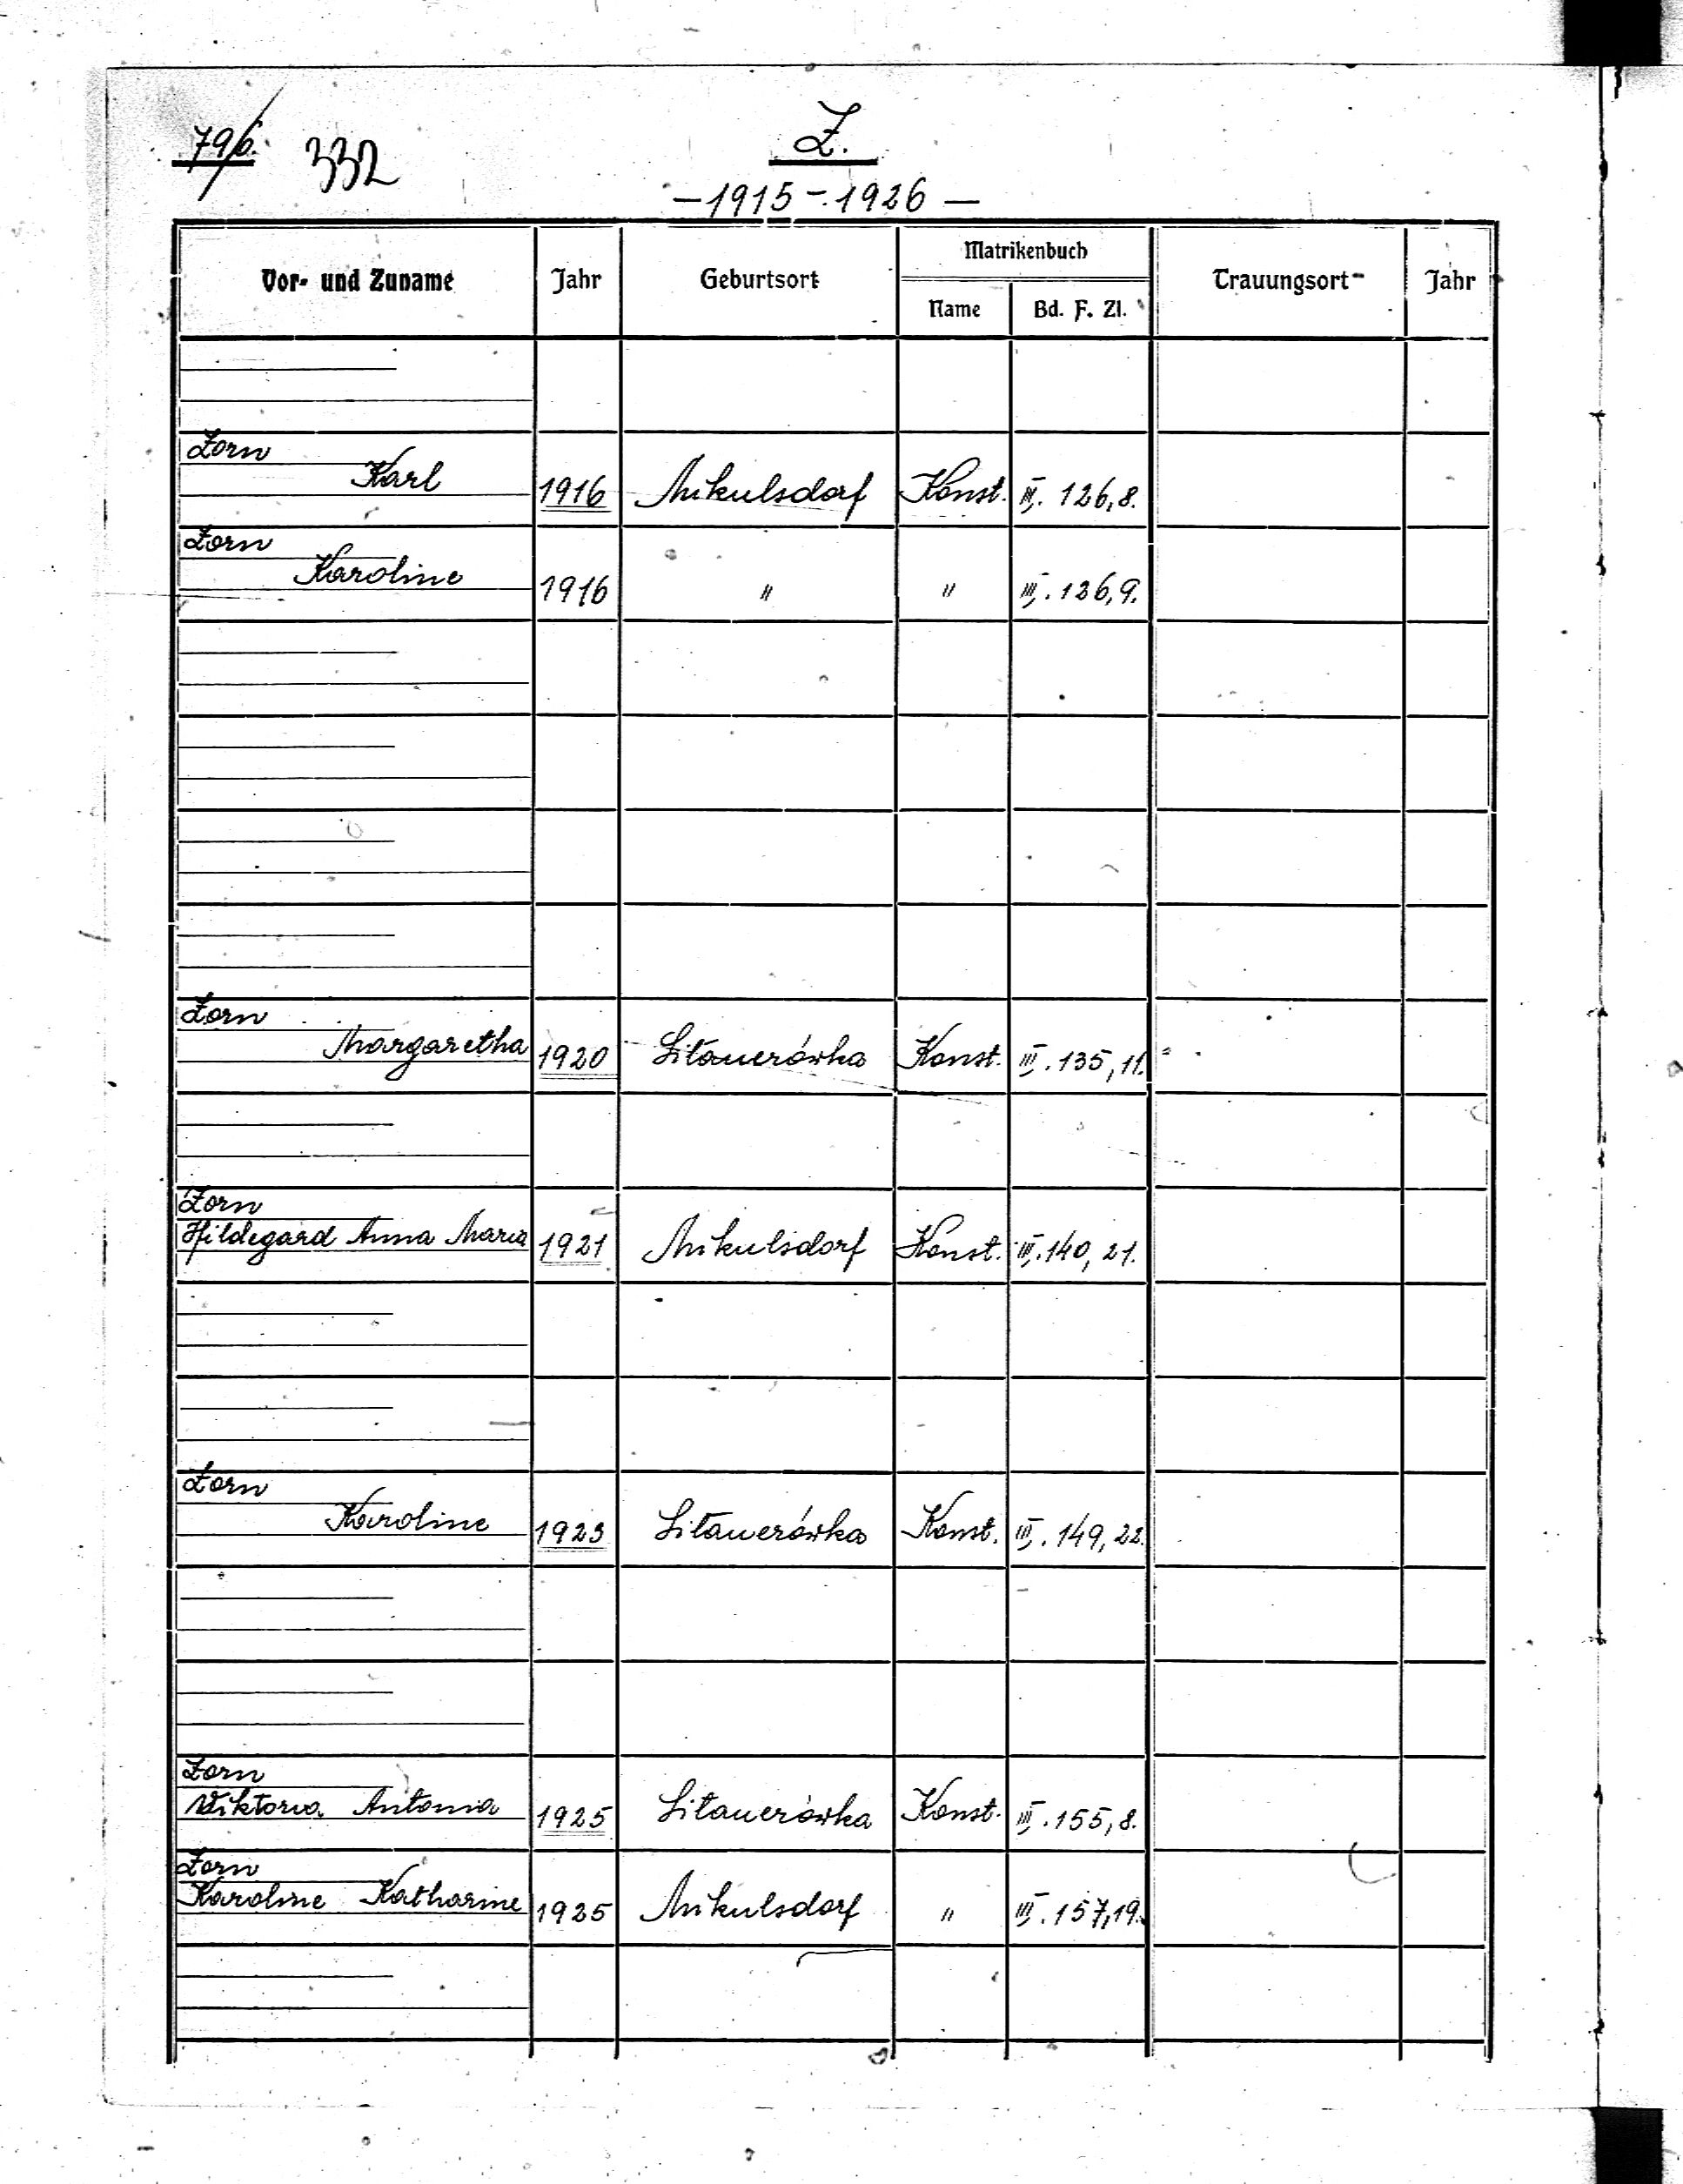 796. 332
Z.
— 1915 – 1926 —
Vor- und Zuname Jahr Geburtsort Matrikenbuch Trauungsort Jahr
Name Bd. F. Zl.
Zorn
Karl 1916 Mikulsdorf Konst. III. 126,8.
Zorn
Karoline 1916 " " III. 126,9.
Zorn
Margaretha 1920 Litauerówka Konst. III. 135,11.
Zorn
Hildegard Anna Maria 1921 Mikulsdorf Konst. III. 140,21.
Zorn
Karoline 1923 Litauerówka Konst. III. 149,22.
Zorn
Viktoria Antonia 1925 Litauerówka Konst. III. 155,8.
Zorn
Karoline Katharine 1925 Mikulsdorf " III. 157,19.